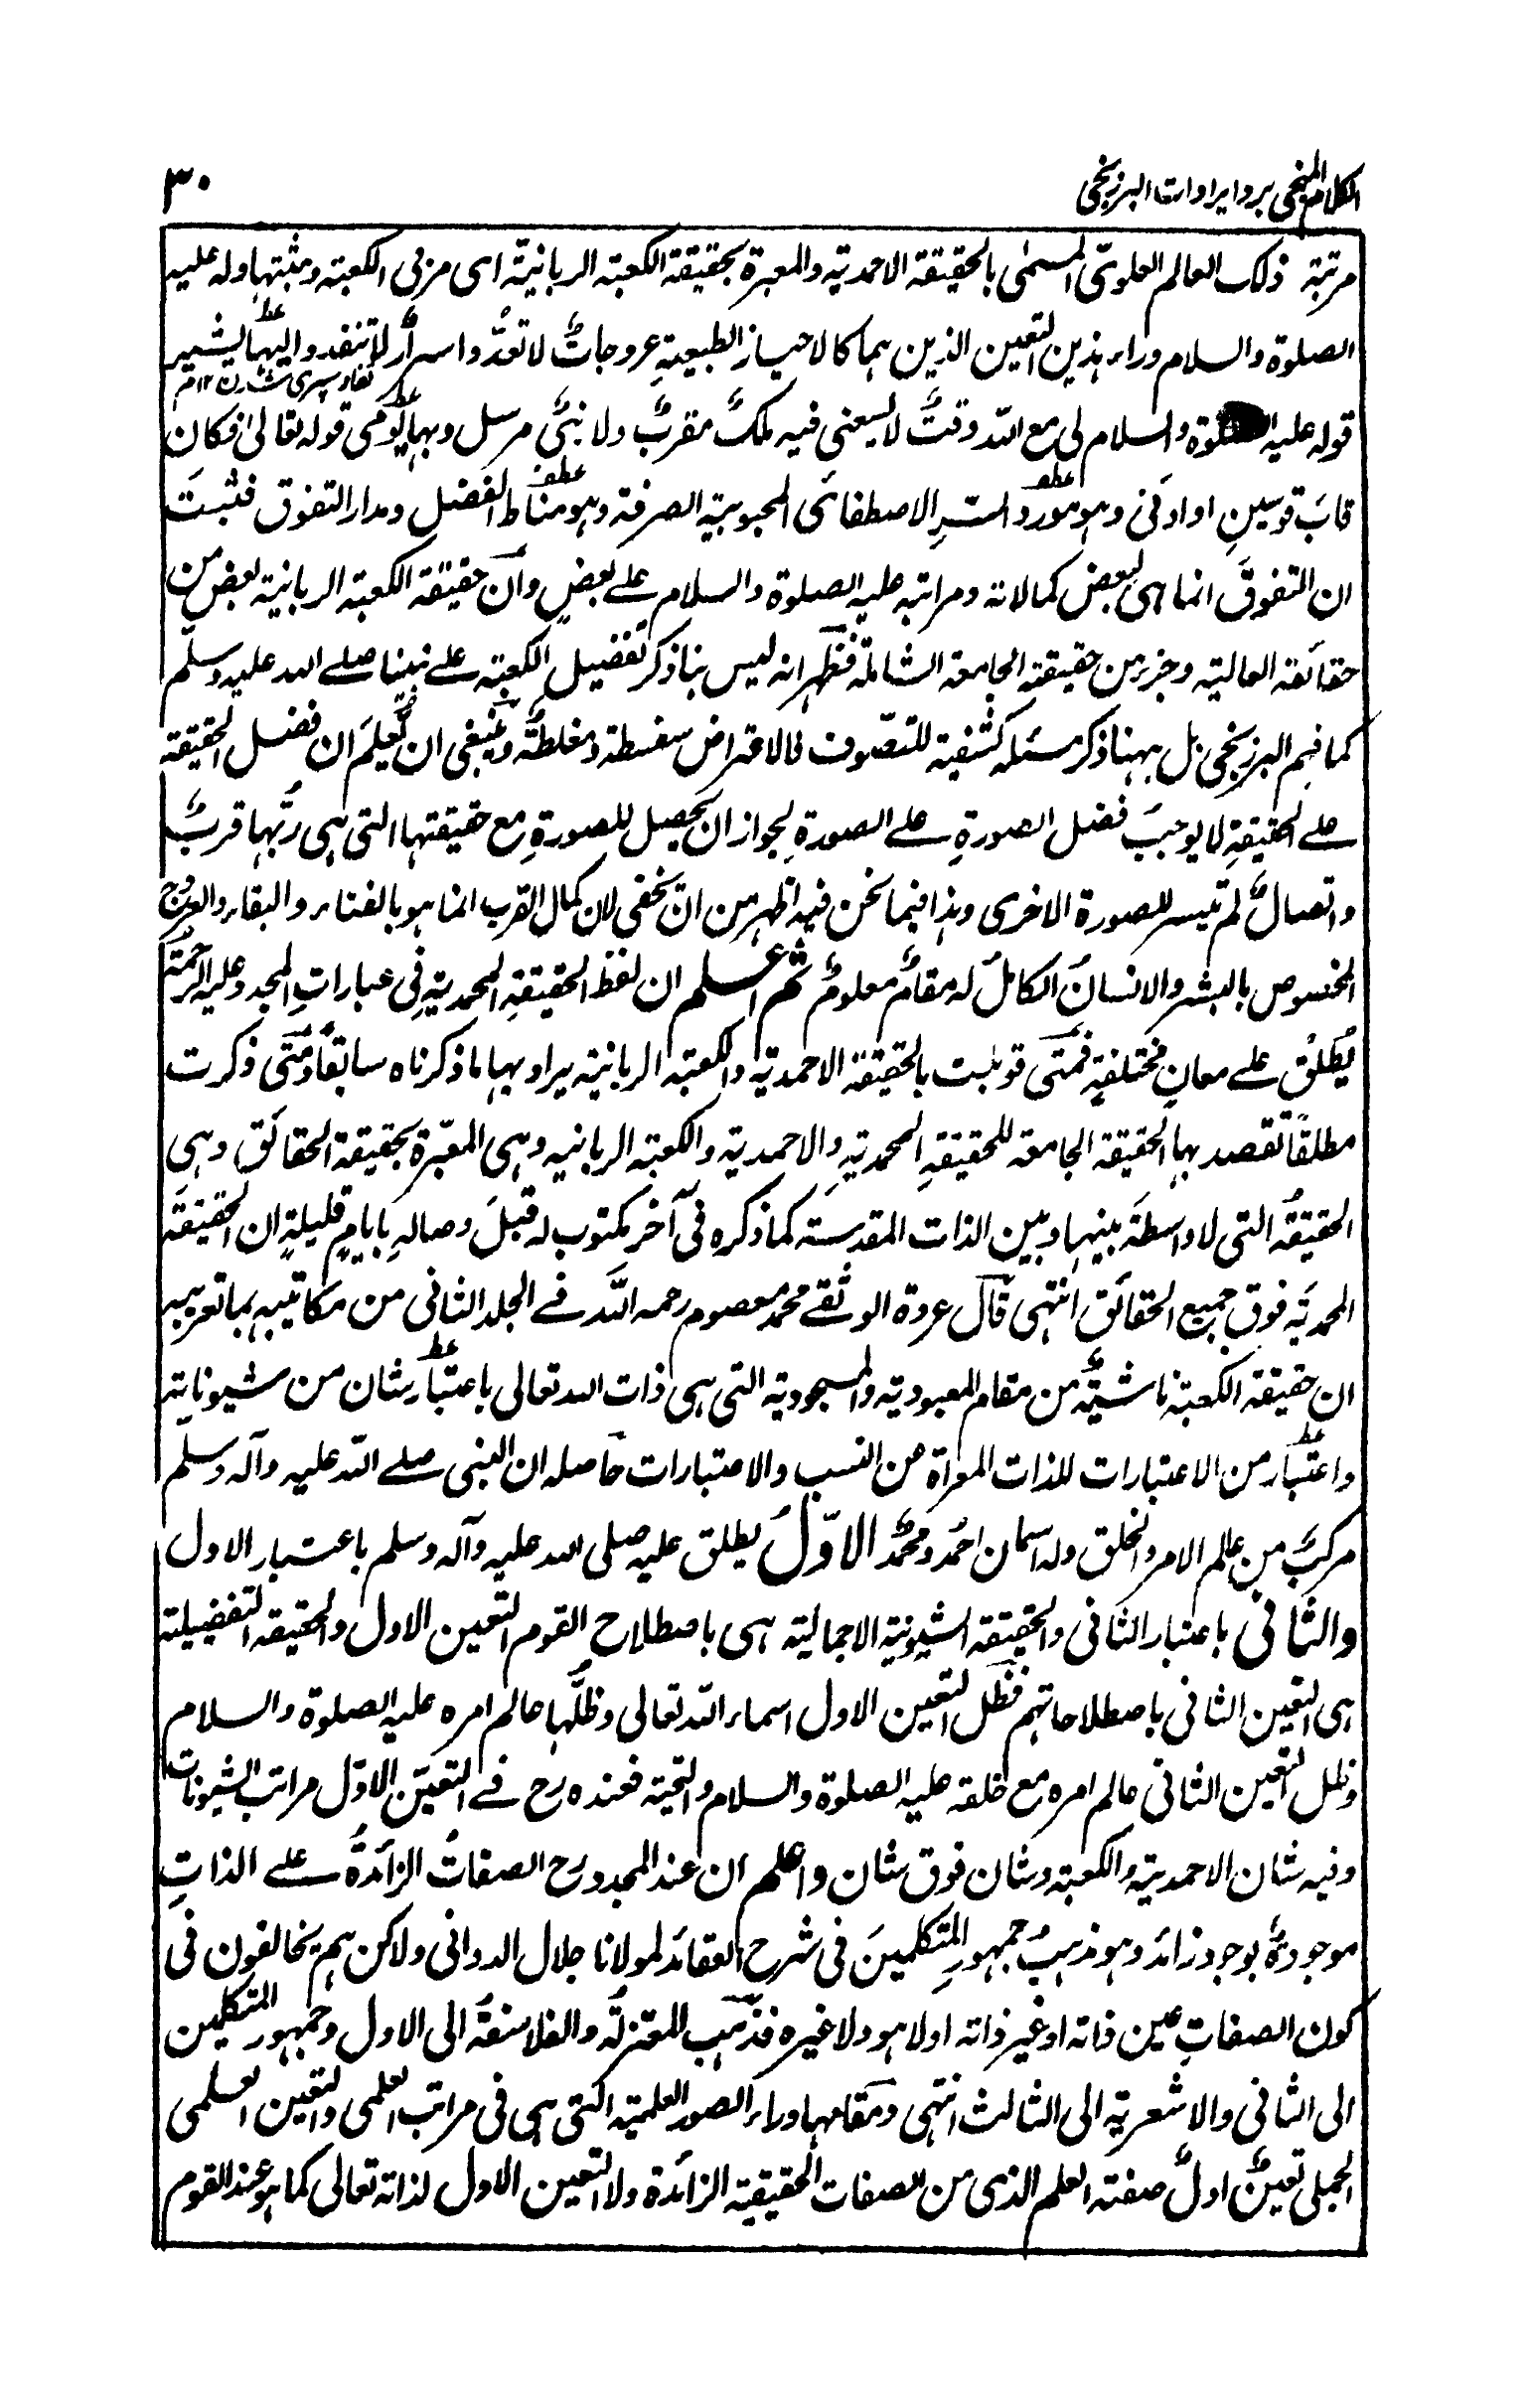 الكلام المنجى برد ايرادات البرزنجى
٣٠
مرتبة ذلك العالم العلوىّ المسمى بالحقيقة الاحمدية والمعبرة بحقيقة الكعبة الربانيّة اى مربى الكعبة ومثبتها وله عليه
الصلوة والسلام وراء هذين التعين الذين هما كالاحياز الطبيعيةِ عروجاتٌ لا تعدُّ واسرارٌ لا تنفد واليها يشير
نفاد سپرى شدن ١٢ م
قوله عليه الصلوة والسلام لى مع الله وقتٌ لا يسعنى فيه ملكٌ مقربٌ ولا نبىٌّ مرسل وبها يومى قوله تعالى فكان
قابَ قوسينِ او ادنى وهو مورد السرِ الاصطفائى المحبوبية الصرفة وهو مناط الفضل ومدار التفوق فثبتَ
ان التفوقَ انما هى لبعض كمالاته ومراتبه عليه الصلوة والسلام على بعضٍ وان حقيقة الكعبة الربانية بعض من
حقائقه العالية وجزء من حقيقتهِ الجامعة الشاملة فظهر انه ليس بنا ذكر تفضيل الكعبة على نبينا صلى الله عليه وسلم
كما فهم البرزنجى بل ههنا ذكر مسئلة كشفية للتصوف فالاعتراض سفسطة ومغلطةٌ وينبغى ان يُعلمَ ان فضل الحقيقة
على الحقيقةِ لا يوجبُ فضل الصورةِ على الصورةِ لجواز ان يحصل للصورةِ مع حقيقتها التى هى ربُّها قربٌ
واتصالٌ لم تيسر للصورة الاخرى وهذا فيما نحن فيه اظهر من ان يخفى لان كمال القرب انما هو بالفناء والبقاء والعروج
المخصوص بالبشر والانسانُ الكاملُ له مقامٌ معلومٌ ثم اعلم ان لفظ الحقيقةِ المحمديةِ فى عباراتِ المجدد عليه الرحمة
يُطلقُ على معانٍ مختلفةٍ فمتى قوبلت بالحقيقة الاحمدية والكعبة الربانية يراد بها ما ذكرناه سابقًا ومتى ذكرت
مطلقًا تقصد بها الحقيقة الجامعة للحقيقةِ المحمديةِ والاحمدية والكعبة الربانيه وهى المعبّرة بحقيقة الحقائق وهى
الحقيقةُ التى لا واسطةَ بينها وبين الذات المقدسة كما ذكره فى آخر مكتوب له قبلَ وصالهِ بايامٍ قليلةٍ ان الحقيقةَ
المحمديَة فوق جميع الحقائق انتهى قال عروة الوثقى محمد معصوم رحمه الله فى الجلد الثانى من مكاتيبه بما تعريبه
ان حقيقة الكعبة ناشيةٌ من مقام المعبودية والمسجودية التى هى ذات الله تعالى باعتبار شان من شيوناته
واعتبار من الاعتبارات للذات المعراة من النسب والاعتبارات حاصله ان النبى صلى الله عليه وآله وسلم
مركبٌ من عالم الامر والخلق وله اسمان احمدُ ومحمدٌ الاوّلُ يطلق عليه صلى الله عليه وآله وسلم باعتبار الاول
والثانى باعتبار الثانى والحقيقة الشيونية الاجمالية هى باصطلاح القوم التعين الاول والحقيقة التفصيلية
هى التعين الثانى باصطلاحاتهم فظل التعين الاول اسماء الله تعالى وظلُّها عالم امره عليه الصلوة والسلام
وظل التعين الثانى عالم امره مع خلقه عليه الصلوة والسلام والتحية فعنده رح فى التعيّن الاوّل مراتب الشيونات
وفيه شان الاحمدية والكعبة وشان فوق شان واعلم ان عند المجدد رح الصفاتُ الزائدةُ على الذاتِ
موجودةٌ بوجود زائد وهو مذهبُ جمهورِ المتكلمينَ فى شرح العقائد لمولانا جلال الدوانى ولاكن هم يخالفون فى
كون الصفاتِ عين ذاته او غير ذاته او لا هو ولا غيره فذهب المعتزلةُ والفلاسفةُ الى الاول وجمهور المتكلمين
الى الثانى والاشعرية الى الثالث انتهى ومقامها وراء الصور العلمية التى هى فى مراتب العلمى والتعين العلمى
الجملى تعينٌ اولُ صفته العلم الذى من الصفات الحقيقية الزائدة ولا التعين الاول لذاته تعالى كما هو عند القوم